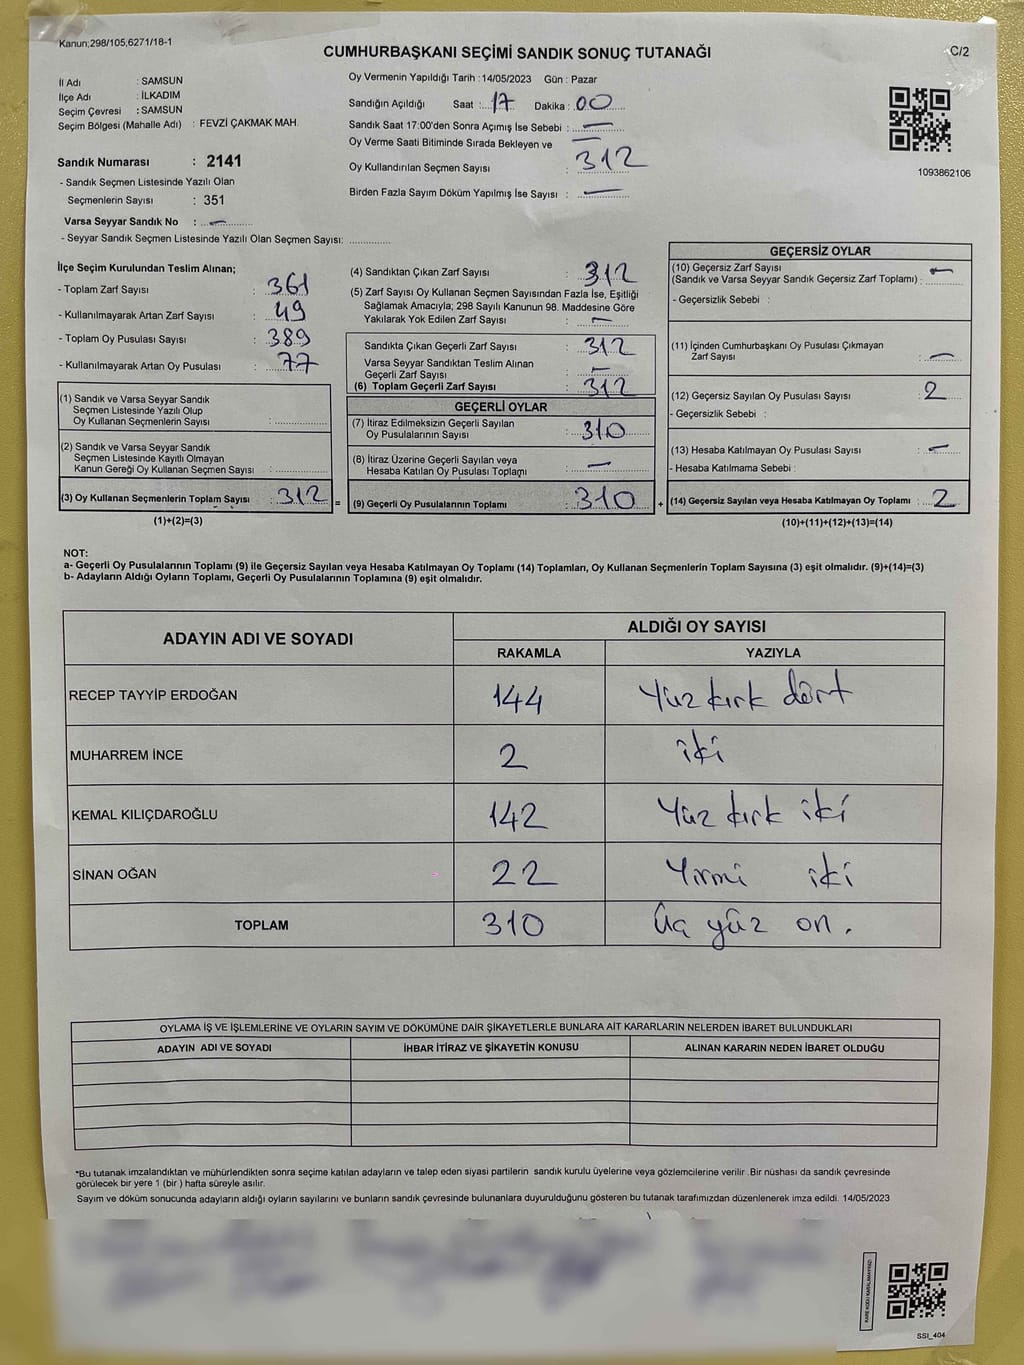 Kanun;298/105,6271/18-1
CUMHURBAŞKANI SEÇİMİ SANDIK SONUÇ TUTANAĞI
C/2
İl Adı : SAMSUN
İlçe Adı : İLKADIM
Seçim Çevresi : SAMSUN
Seçim Bölgesi (Mahalle Adı) : FEVZİ ÇAKMAK MAH.
Sandık Numarası : 2141
- Sandık Seçmen Listesinde Yazılı Olan
Seçmenlerin Sayısı : 351
Varsa Seyyar Sandık No : —
- Seyyar Sandık Seçmen Listesinde Yazılı Olan Seçmen Sayısı: ............
Oy Vermenin Yapıldığı Tarih : 14/05/2023 Gün : Pazar
Sandığın Açıldığı Saat : 17 Dakika : 00
Sandık Saat 17:00'den Sonra Açımış İse Sebebi : —
Oy Verme Saati Bitiminde Sırada Bekleyen ve —
Oy Kullandırılan Seçmen Sayısı : 312
Birden Fazla Sayım Döküm Yapılmış İse Sayısı : —
1093862106
İlçe Seçim Kurulundan Teslim Alınan;
- Toplam Zarf Sayısı : 361
- Kullanılmayarak Artan Zarf Sayısı : 49
- Toplam Oy Pusulası Sayısı : 389
- Kullanılmayarak Artan Oy Pusulası : 77
(1) Sandık ve Varsa Seyyar Sandık
Seçmen Listesinde Yazılı Olup
Oy Kullanan Seçmenlerin Sayısı :
(2) Sandık ve Varsa Seyyar Sandık
Seçmen Listesinde Kayıtlı Olmayan
Kanun Gereği Oy Kullanan Seçmen Sayısı :
(3) Oy Kullanan Seçmenlerin Toplam Sayısı : 312 =
(1)+(2)=(3)
(4) Sandıktan Çıkan Zarf Sayısı : 312
(5) Zarf Sayısı Oy Kullanan Seçmen Sayısından Fazla İse, Eşitliği
Sağlamak Amacıyla; 298 Sayılı Kanunun 98. Maddesine Göre
Yakılarak Yok Edilen Zarf Sayısı : —
Sandıkta Çıkan Geçerli Zarf Sayısı : 312
Varsa Seyyar Sandıktan Teslim Alınan
Geçerli Zarf Sayısı : —
(6) Toplam Geçerli Zarf Sayısı : 312
GEÇERLİ OYLAR
(7) İtiraz Edilmeksizin Geçerli Sayılan
Oy Pusulalarının Sayısı : 310
(8) İtiraz Üzerine Geçerli Sayılan veya
Hesaba Katılan Oy Pusulası Toplamı : —
(9) Geçerli Oy Pusulalarının Toplamı : 310 +
GEÇERSİZ OYLAR
(10) Geçersiz Zarf Sayısı
(Sandık ve Varsa Seyyar Sandık Geçersiz Zarf Toplamı) : —
- Geçersizlik Sebebi :
(11) İçinden Cumhurbaşkanı Oy Pusulası Çıkmayan
Zarf Sayısı : —
(12) Geçersiz Sayılan Oy Pusulası Sayısı : 2
- Geçersizlik Sebebi :
(13) Hesaba Katılmayan Oy Pusulası Sayısı : —
- Hesaba Katılmama Sebebi :
(14) Geçersiz Sayılan veya Hesaba Katılmayan Oy Toplamı : 2
(10)+(11)+(12)+(13)=(14)
NOT:
a- Geçerli Oy Pusulalarının Toplamı (9) ile Geçersiz Sayılan veya Hesaba Katılmayan Oy Toplamı (14) Toplamları, Oy Kullanan Seçmenlerin Toplam Sayısına (3) eşit olmalıdır. (9)+(14)=(3)
b- Adayların Aldığı Oyların Toplamı, Geçerli Oy Pusulalarının Toplamına (9) eşit olmalıdır.
ADAYIN ADI VE SOYADI ALDIĞI OY SAYISI
RAKAMLA YAZIYLA
RECEP TAYYİP ERDOĞAN 144 Yüz kırk dört
MUHARREM İNCE 2 iki
KEMAL KILIÇDAROĞLU 142 Yüz kırk iki
SİNAN OĞAN 22 Yirmi iki
TOPLAM 310 Üç yüz on.
OYLAMA İŞ VE İŞLEMLERİNE VE OYLARIN SAYIM VE DÖKÜMÜNE DAİR ŞİKAYETLERLE BUNLARA AİT KARARLARIN NELERDEN İBARET BULUNDUKLARI
ADAYIN ADI VE SOYADI İHBAR İTİRAZ VE ŞİKAYETİN KONUSU ALINAN KARARIN NEDEN İBARET OLDUĞU
*Bu tutanak imzalandıktan ve mühürlendikten sonra seçime katılan adayların ve talep eden siyasi partilerin sandık kurulu üyelerine veya gözlemcilerine verilir .Bir nüshası da sandık çevresinde
görülecek bir yere 1 (bir ) hafta süreyle asılır.
Sayım ve döküm sonucunda adayların aldığı oyların sayılarını ve bunların sandık çevresinde bulunanlara duyurulduğunu gösteren bu tutanak tarafımızdan düzenlenerek imza edildi. 14/05/2023
SSI_404